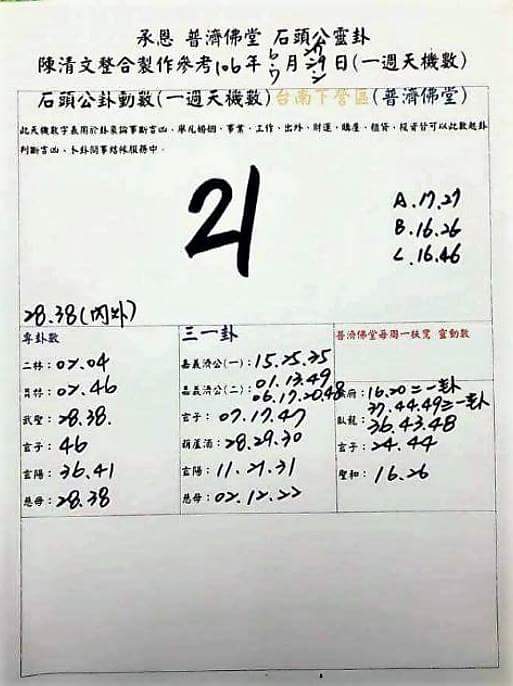 承恩 普濟佛堂 石頭公靈卦
陳清文整合製作參考106年 6/7月 27/29/2日(一週天機數)
石頭公卦動數(一週天機數)台南下營區(普濟佛堂)
此天機數字義用於卦象論事斷吉凶，舉凡婚姻、事業、工作、出外、財運、購屋、租賃、投資皆可以此數起卦
判斷吉凶，卜卦問事結緣服務中。
21
A.17.27
B.16.26
C.16.46
28.38(內外)
專卦數
二林：02.04
員林：02.46
武聖：28.38.
玄子：46
玄陽：36.41
慈母：28.38
三一卦
嘉義濟公(一)：15.25.35
嘉義濟公(二)：01.13.49
06.17.20.48
玄子：07.17.47
葫蘆酒：28.29.30
玄陽：11.21.31
慈母：02.12.22
普濟佛堂每周一扶鸞 靈動數
府：16.20=一卦
37.44.49=一卦
臥龍：36.43.48
玄子：24.44
聖和：16.26